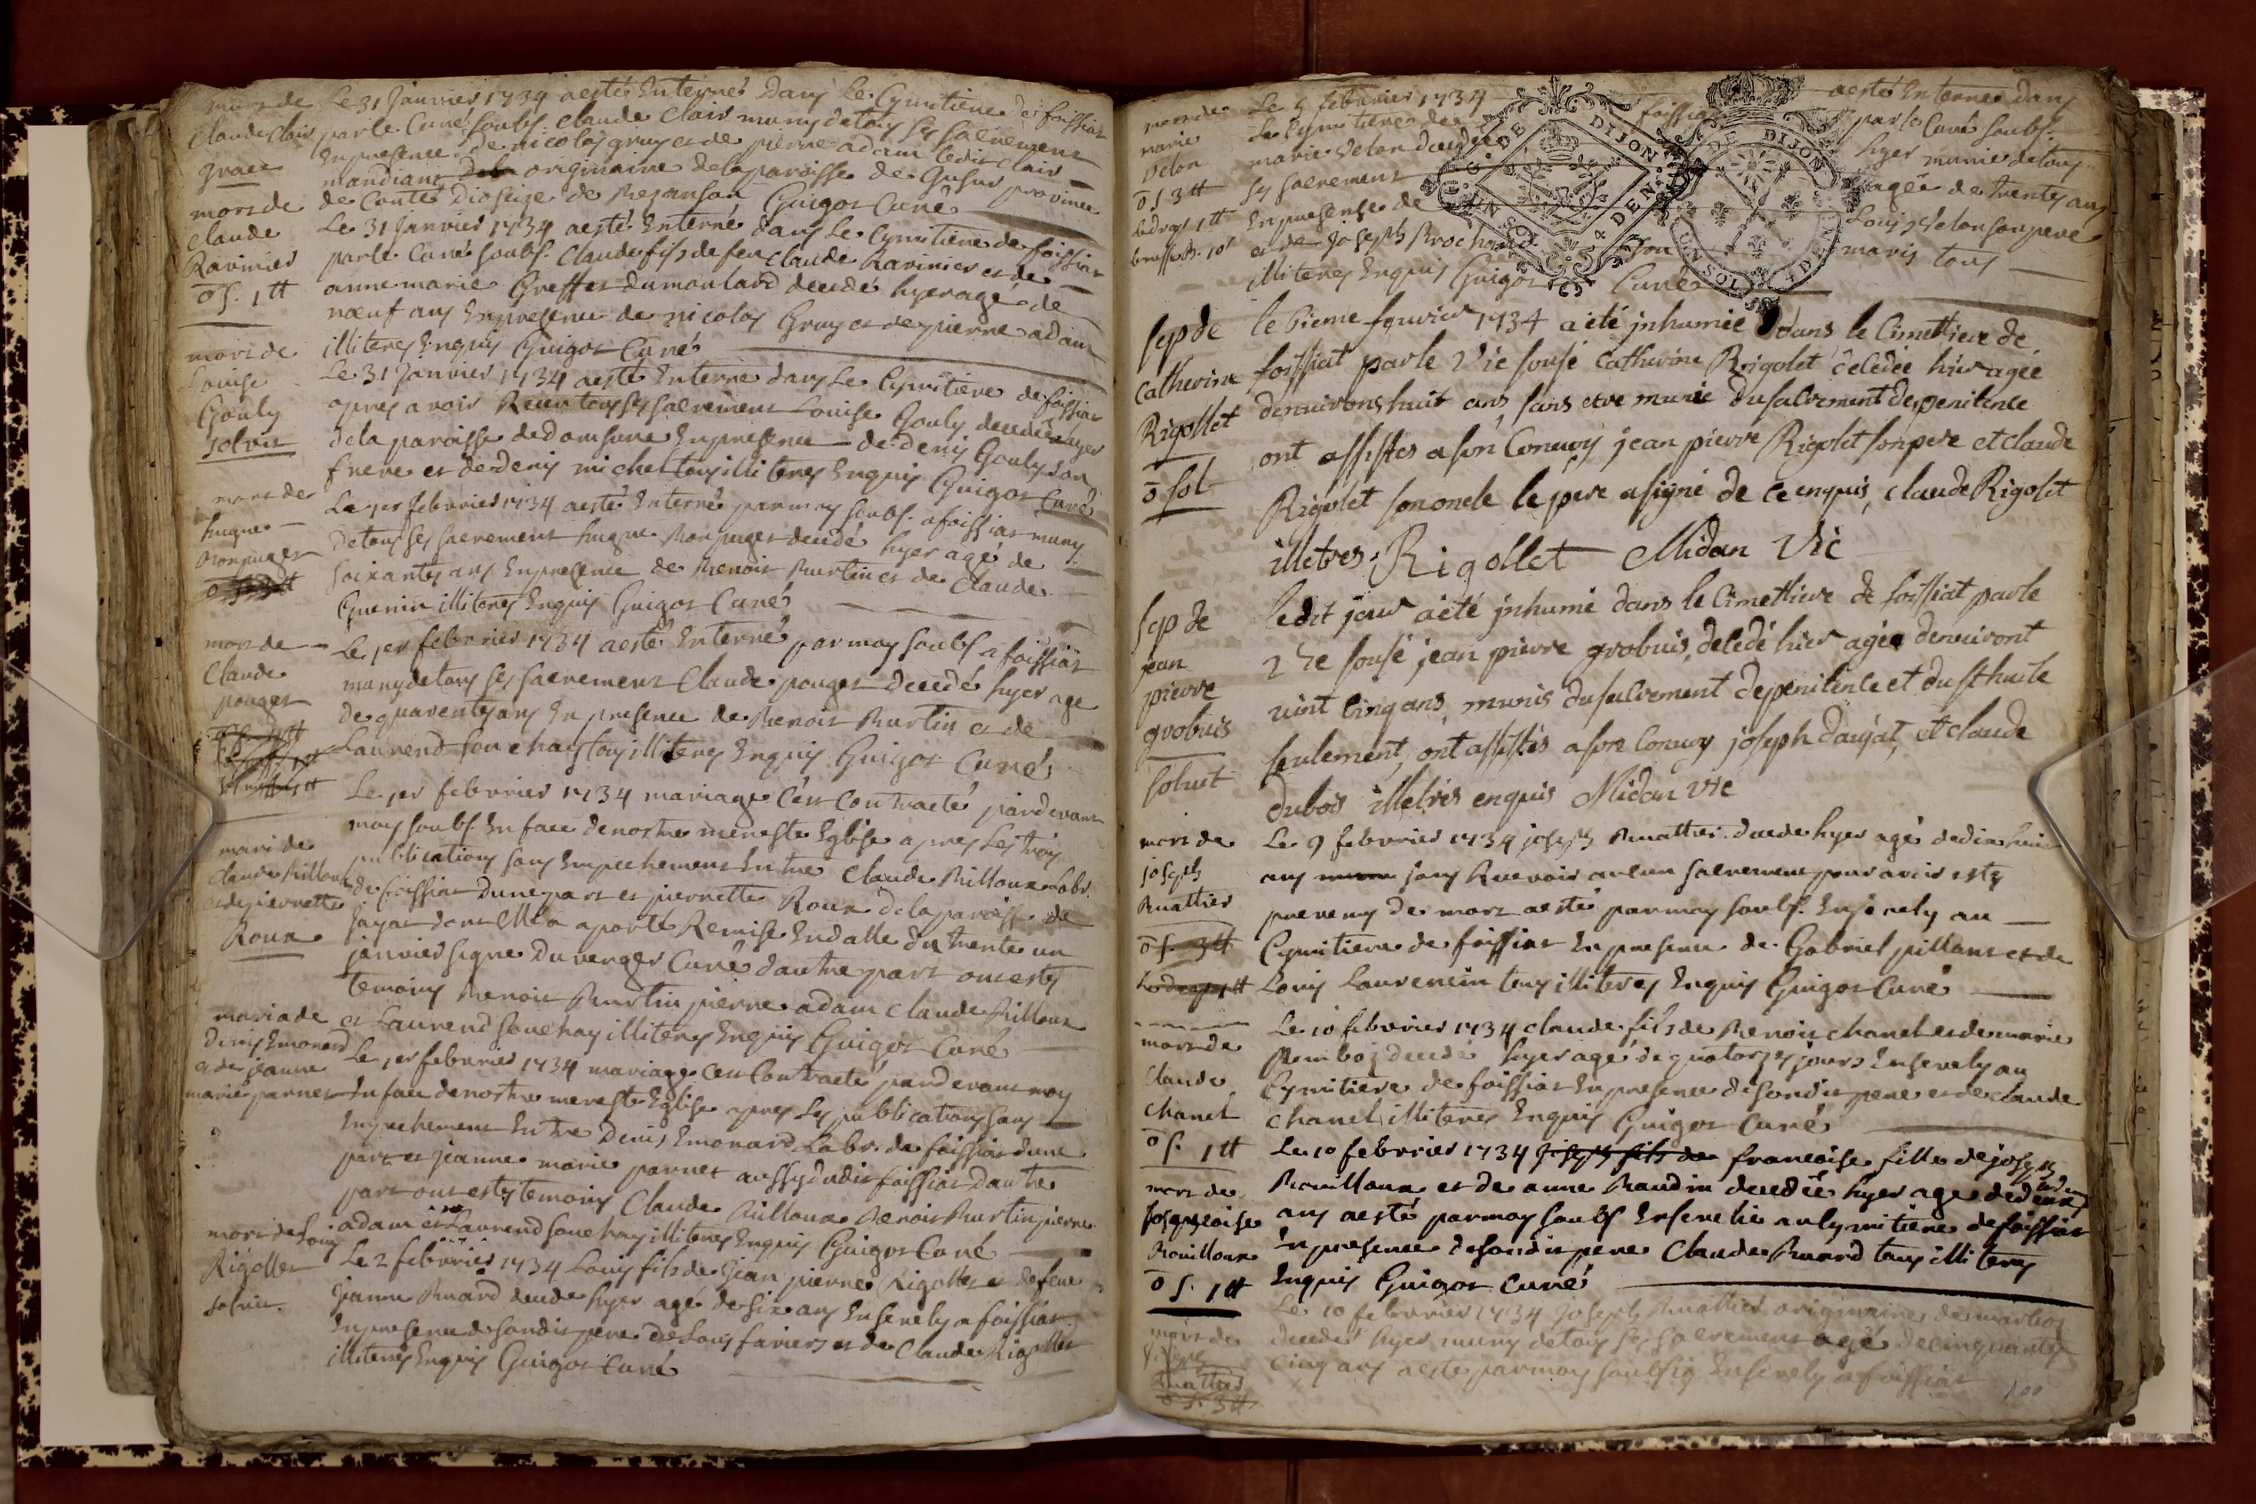 mors de
Claude Clair
grace
Le 31 Janvier 1734 aesté Enterré Dans Le Cymitiere de foissiat
par le Curé soubs. Claude Clair muny de tous ses sacrement
En presence de nicolas gruy et de pierre adam ledit Clair
mandiant originaire de la paroisse de province
de Conté Dioseize de Besanson Guigot Curé
mors de
Claude
Ravinier
o s. 1 tt
Le 31 Janvier 1734 aesté Enterré dans Le Cymitiere de foissiat
par le Curé soubs. Claude fils de feu Claude Ravinier et de
anne marie Greffet Dumoulard decedé hyer agé de
nœuf ans En presence de nicolas Gruy et de pierre adam
illiterés Enquis Guigot Curé
mors de
Louise
Gouly
solvit
Le 31 Janvier 1734 aesté Enterrée dans Le Cymitiere de foissiat
apres avoir Receu tous ses sacrement Louise Gouly decedée hyer
de la paroisse de domsure En presence de denis Gouly son
frere et de denis michel tous illiterés Enquis Guigot Curé
mors de
hugue
Monpuget
Le 1er febvrier 1734 aesté Enterré par moy soubs. a foissiat muny
de tous ses sacrement hugue Monpuget decedé hyer agé de
soixantes ans En presence de Benoit Burtin et de Claude
Guenin illiterés Enquis Guigot Curé
mors de
Claude
pouget
Le 1er febvrier 1734 aesté Enterré par moy soubs a foissiat
muny de tous ses sacrement Claude pouget decedé hyer agé
de quarentes ans En presence de Benoit Burtin et de
Laurend souchay tous illiterés Enquis Guigot Curé
mari de
Claude Billoux
et de pierrette
Roux
Le 1er febvrier 1734 mariage C'est Contracté pardevant
moy soubs. En face de nostre mere ste Eglise apres Les trois
publications sans Empechement Entre Claude Billoux Labr.
de foissiat dune part et pierrette Roux de la paroisse de
jayat dont Elle a aporté Remise En datte du trente un
janvier signe Duverger Curé dautre part ont estés
temoins Benoit Burtin pierre adam Claude Billoux
et Laurend souchay illiterés Enquis Guigot Curé
maria de
Denis Emonard
et de jeanne
marie parnet
Le 1er febvrier 1734 mariage cest Contracté pardevant moy
En face de nostre mere ste Eglise apres Les publications sans
Empechement Entre Denis Emonard Labr. de foissiat dune
part et jeanne marie parnet aussy dudit foissiat dautre
part ont estés temoins Claude Billoux Benoit Burtin pierre
adam et Laurend souchay illiterés Enquis Guigot Curé
mors de Louis
Rigollet
solvit
Le 2 febvrier 1734 Louis fils de Jean pierre Rigollet et de feue
Jeanne Buard decedé hyer agé de six ans Ensevely a foissiat
En presence de sondit pere de Louis et de Claude Rigollet
illiterés Enquis Guigot Curé
mors de
marie
velon
o s 3 tt
Le 5 febvrier 1734 aesté Enterrée dans
Le Cymitiere de foissiat par le Curé soubs.
marie velon decedée hyer munie de tous
ses sacrement agée de trentes ans
En presence de Louis velon son pere
et de Joseph Brochand son maris tous
illiterés Enquis Guigot Curé
G. DE DIJON
UN SOL 4 DEN.
G. DE DIJON
UN SOL 4 DEN
sep de
Catherine
Rigollet
o sol
le 6ieme fevrier 1734 a été jnhumée dans le Cimettiere de
foissiat par le Vic sousé Catherine Rigolet decedée hier agée
denvirons huit ans sans etre munie du sacrement de penitence
ont assistés a son Convoy jean pierre Rigolet son pere et claude
Rigolet son oncle le pere a signé de ce enquis, claude Rigolet
illetres: Rigollet Midan Vic
sep de
jean
pierre
grobuis
solvit
le dit jour a été jnhumé dans le Cimettiere de foissiat par le
Vic sousé jean pierre grobuis, decedé hier agée denviront
vint cinq ans, munis du sacrement de penitence et du st huile
seulement, ont assistés a son Convoy joseph daujat, et claude
dubois illetrés enquis Midan Vic
mors de
joseph
Buattier
o s 3 tt
Le 9 febvrier 1734 joseph Buattier decedé hyer agé de dix huit
ans sans Recevoir aucun sacrement pour avoir estés
prevenu de mort aesté par moy soubs. Ensevely au
Cymitiere de foissiat En presence de Gabriel pillant et de
Louis Laurencin tous illiterés Enquis Guigot Curé
mors de
Claude
Chanel
o s. 1 tt
Le 10 febvrier 1734 Claude fils de Benoit Chanel et de marie
decedé hyer agé de quatorzes jours Ensevely au
Cymitiere de foissiat En presence de sondit pere et de claude
Chanel illiterés Enquis Guigot Curé
mors de
francoise
Bouilloux
o s. 1 tt
Le 10 febvrier 1734 joseph fils de francoise fille de joseph
Bouilloux et de anne Baudin decedée hyer agée de deux
ans aesté par moy soubs Ensevelie au Cymitiere de foissiat
En presence de sondit pere Claude Buard tous illiterés
Enquis Guigot Curé
mors de
joseph
Buattier
o s. 3 tt
Le 10 febvrier 1734 Joseph Buattier originaire de
decedé hyer muny de tous ses sacrement agé de cinquantes
cinq ans aesté par moy soubsig Ensevely a foissiat
100